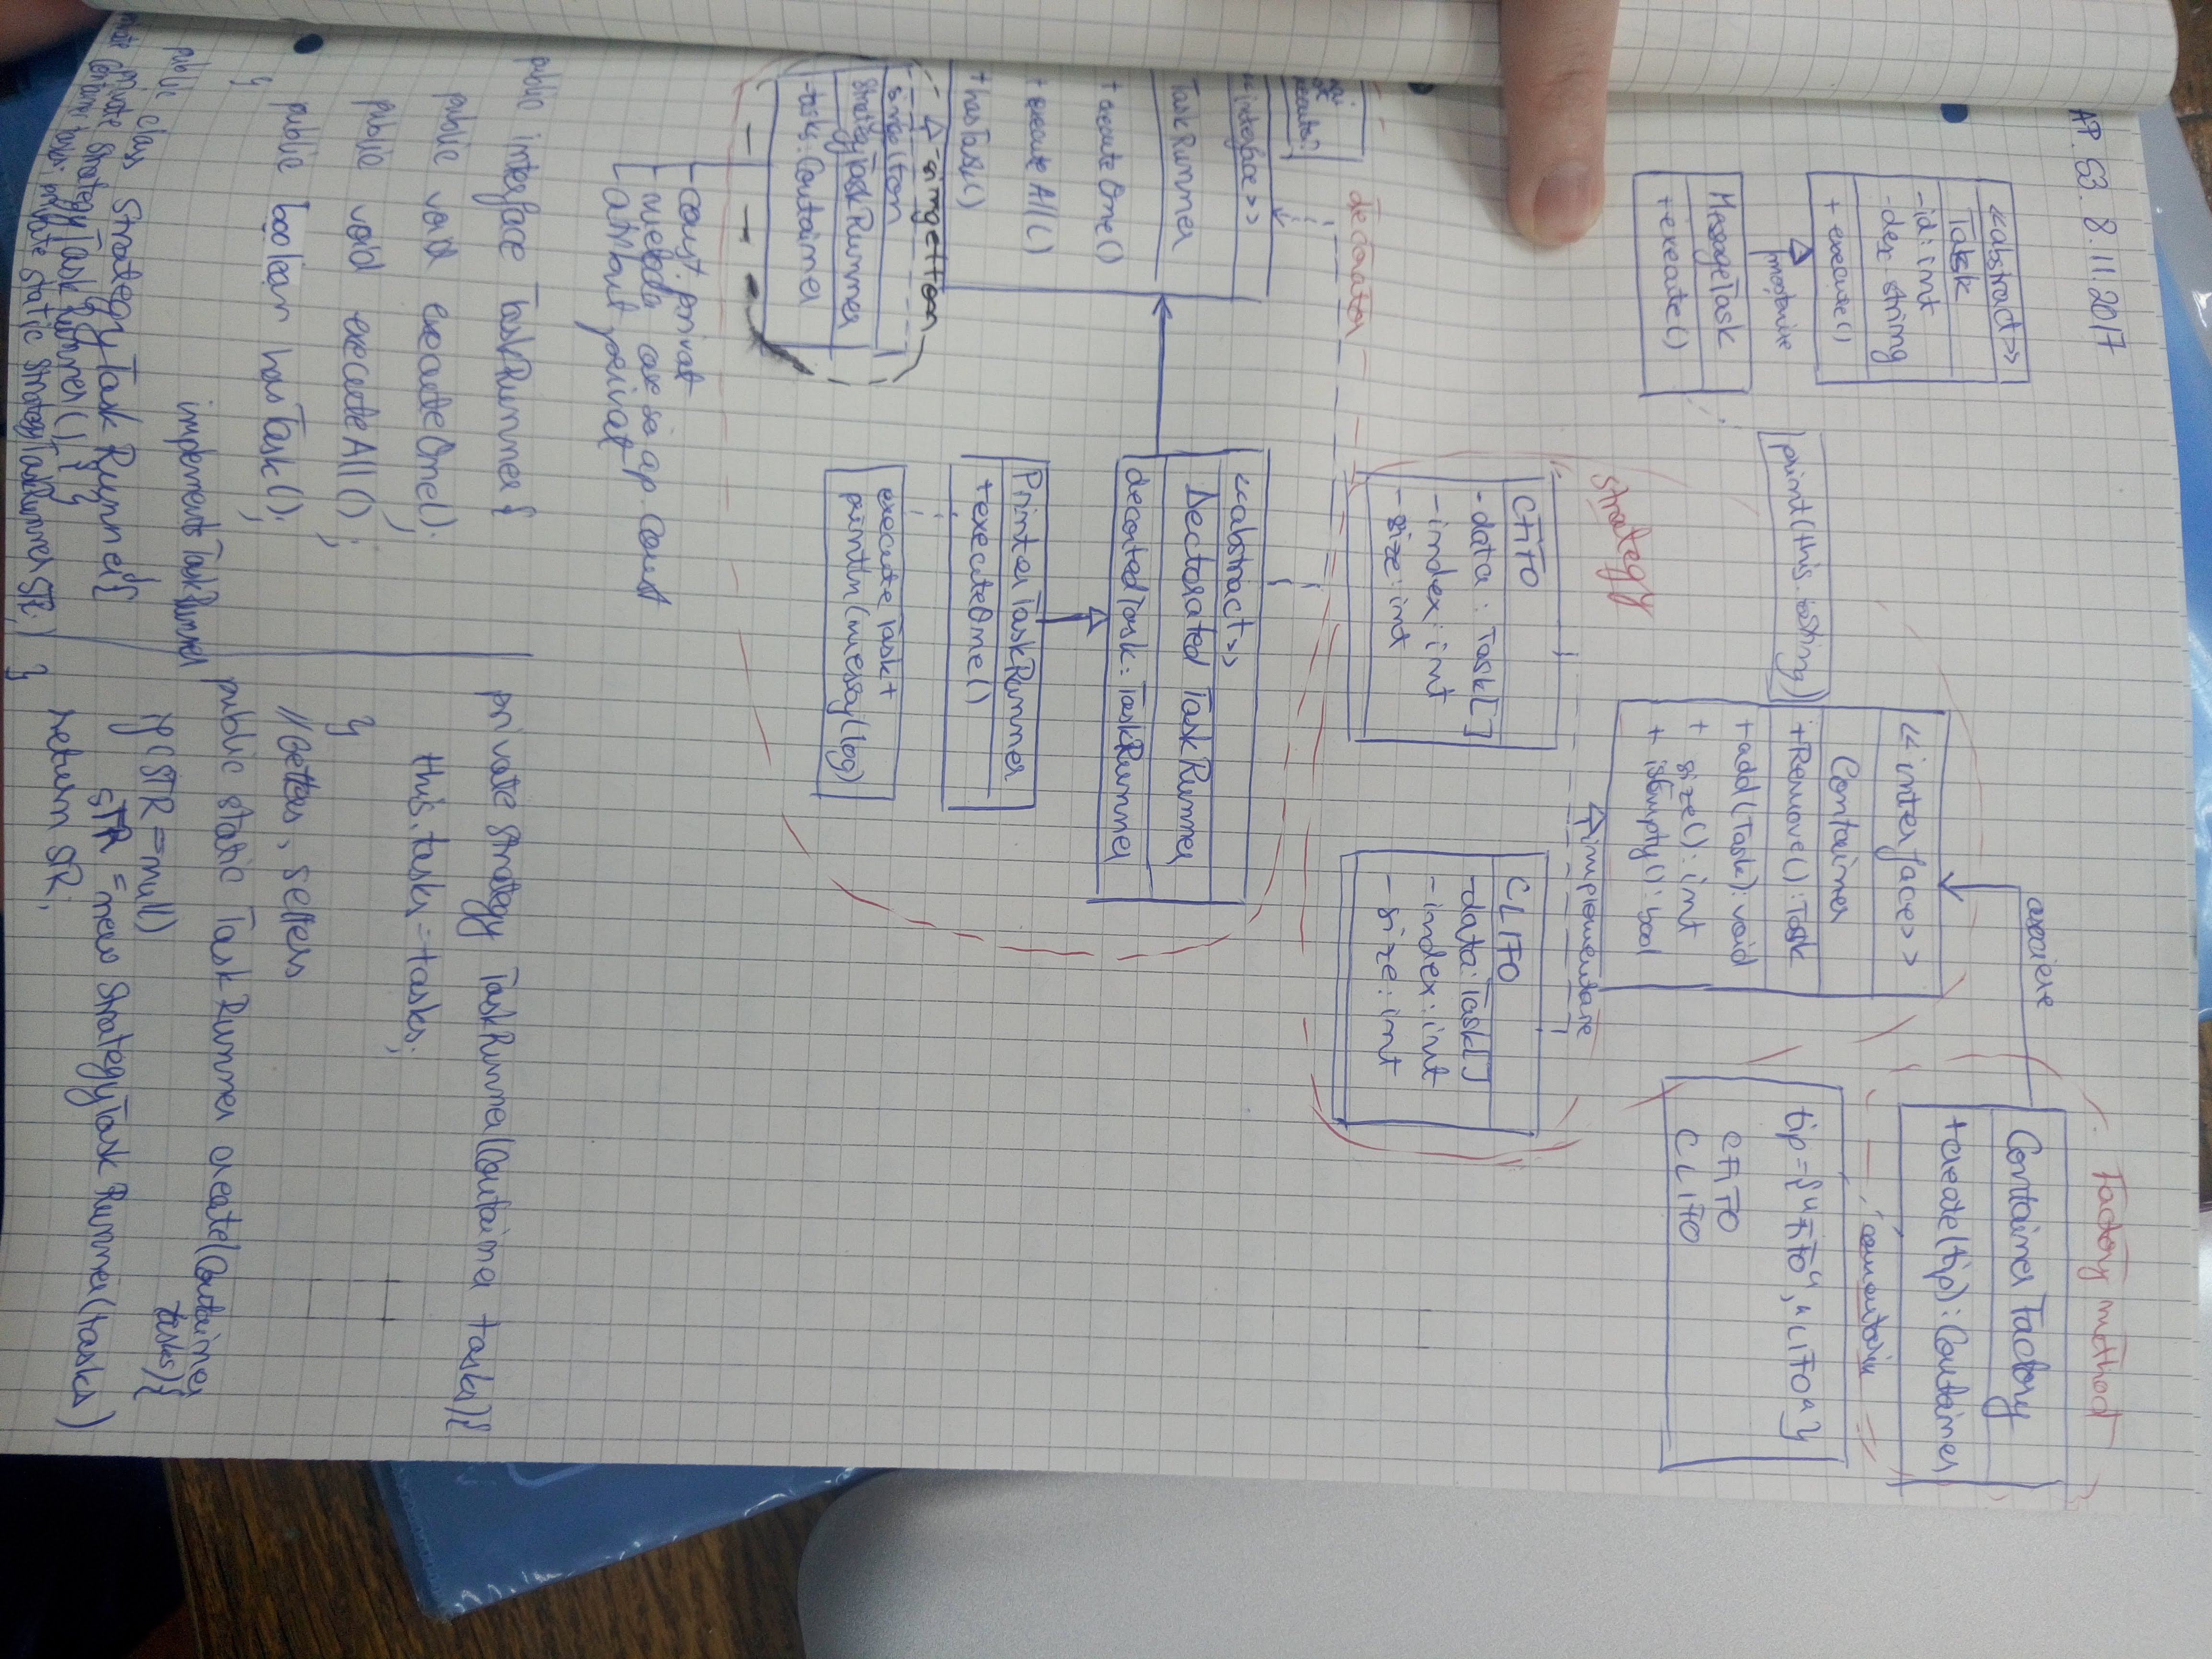 AP. S3. 8.11.2017
Factory method
Container Factory
+create(tip): Container
asociere
comentariu
tip={"FiFO", "LIFO"}
CFiFO
CLIFO
<<abstract>>
Task
-id: int
-des: string
+ execute()
moștenire
MessageTask
+execute()
print(this.toString)
<<interface>>
Container
+Remove(): Task
+add(Task): void
+ size(): int
+ isEmpty(): bool
implementare
strategy
CFiFO
-data: Task[]
-index: int
-size: int
CLIFO
-data: Task[]
-index: int
-size: int
decorator
<<interface>>
TaskRunner
+ executeOne()
+ executeAll()
+hasTask()
<<abstract>>
Dectorated TaskRunner
decortedTask: TaskRunner
PrinterTaskRunner
+executeOne()
executeTask+
println(messy(log)
singelton
singelton
StrategyTaskRunner
-tasks: Container
- const. privat
- metoda care se ap. const
- atribut privat
public interface TaskRunner {
public void executeOne();
public void executeAll();
public boolean hasTask();
}
implements TaskRunner
public class StrategyTaskRunner{
private StrategyTaskRunner() { }
private Container tasks; private static StrategyTaskRunner STR;
private Strategy TaskRunner(Container tasks){
this.tasks=tasks;
}
//Getters, setters
public static TaskRunner create(Container
tasks){
if(STR==null)
STR = new StrategyTaskRunner(tasks)
return STR;
}